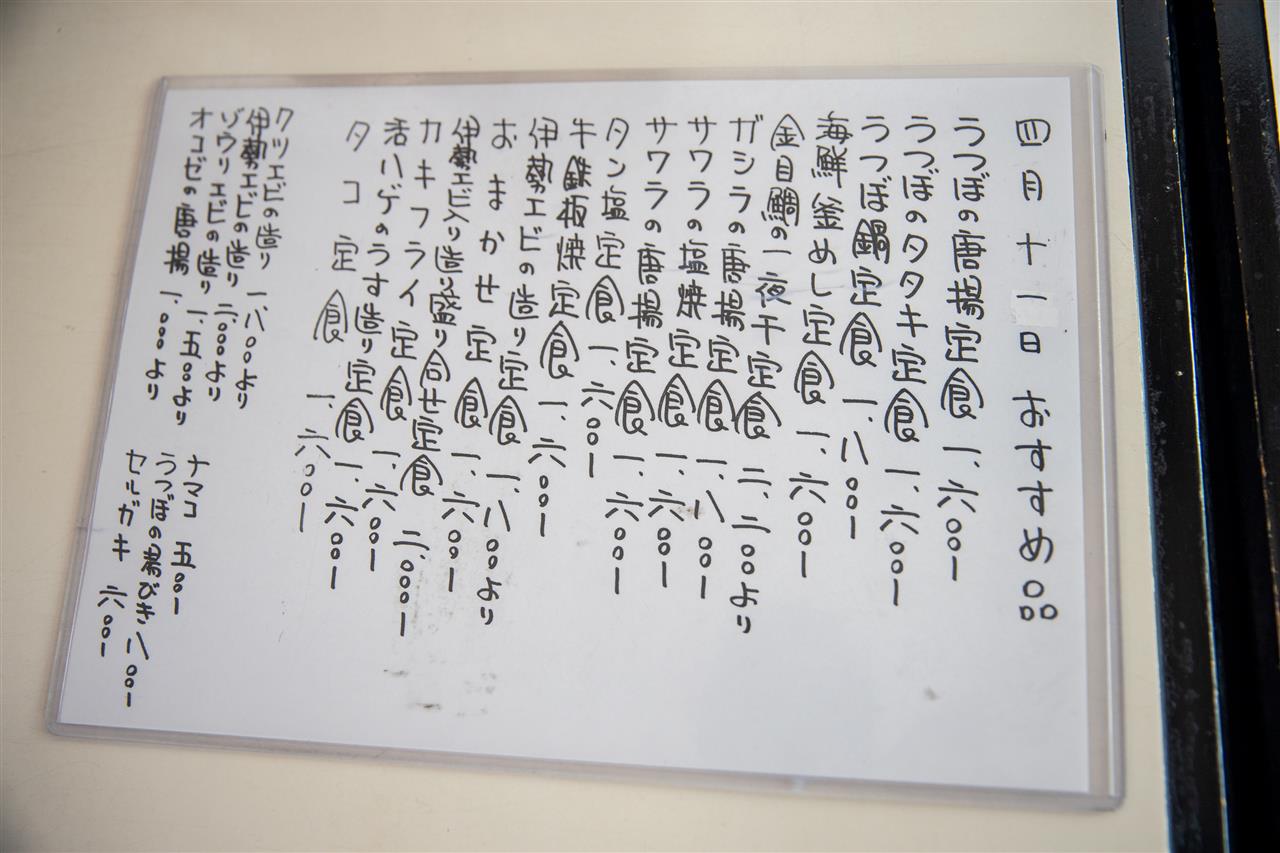 四月十一日 おすすめ品
うつぼの唐揚定食 一、六〇〇ー
うつぼのタタキ定食 一、六〇〇ー
うつぼ鍋定食 一、八〇〇ー
海鮮釜めし定食 一、六〇〇ー
金目鯛の一夜干定食 二、二〇〇より
ガシラの唐揚定食 一、八〇〇ー
サワラの塩焼定食 一、六〇〇ー
サワラの唐揚定食 一、六〇〇ー
タン塩定食 一、六〇〇ー
牛鐵板焼定食 一、六〇〇ー
伊勢エビの造り定食 一、八〇〇より
おまかせ定食 一、六〇〇ー
伊勢エビ入り造り盛り合せ定食 二、〇〇〇ー
カキフライ定食 一、六〇〇ー
活ハゲのうす造り定食 一、六〇〇ー
タコ定食 一、六〇〇ー
クツエビの造り 一、八〇〇より
伊勢エビの造り 二、〇〇〇より
ゾウリエビの造り 一、五〇〇より
オコゼの唐揚 一、〇〇〇より
ナマコ 五〇〇ー
うつぼの湯びき 八〇〇ー
セルガキ 六〇〇ー